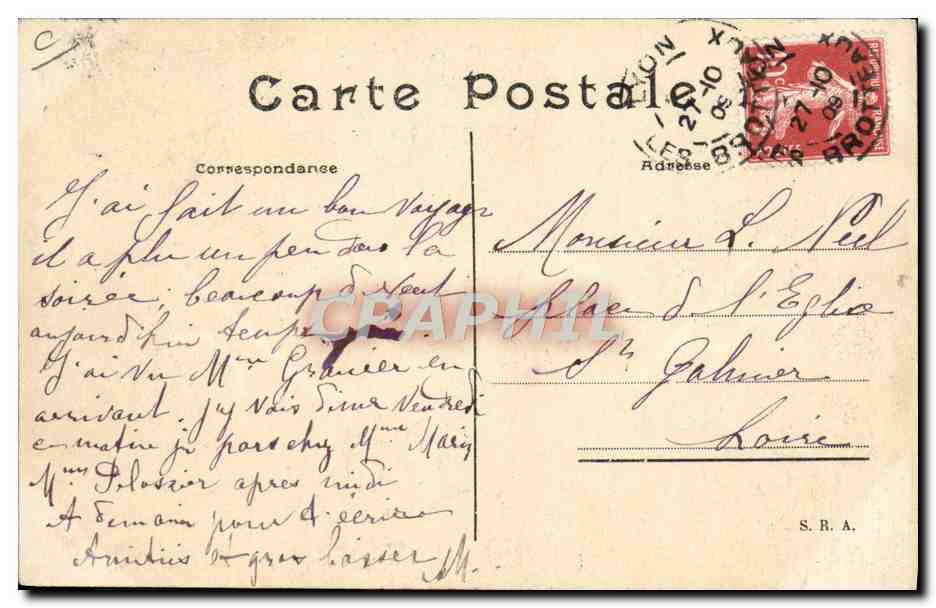 C
Carte Postale
LYON
LES BROTTEAUX
27-10
09
BROTTEAUX
27-10
09
Correspondance
Adresse
J'ai fait un bon voyage
il a plu un peu dans la
soirée, beaucoup de vent
aujourd'hui temps
J'ai vu Mme Granier en
arrivant. J'y vais dîner vendredi
ce matin je pars chez Mme
Mme après midi
A demain pour t'écrire
Amitiés et gros baiser M.
Monsieur L. Néel
Place de l'Eglise
St Galmier
Loire
S. R. A.
CPAPHIL